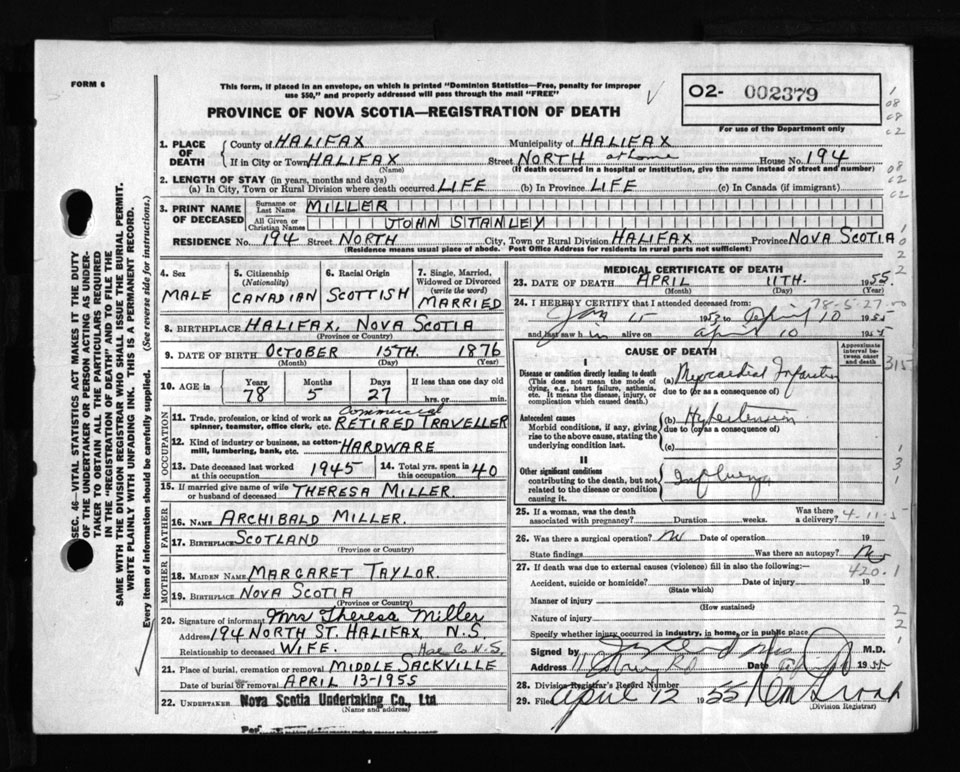 FORM 6
This form, if placed in an envelope, on which is printed "Dominion Statistics—Free, penalty for improper
use $50," and properly addressed will pass through the mail "FREE"
PROVINCE OF NOVA SCOTIA—REGISTRATION OF DEATH
O2- 002379
For use of the Department only
1. PLACE OF DEATH County of HALIFAX Municipality of HALIFAX
If in City or Town HALIFAX Street NORTH at home House No. 194
(Name) (If death occurred in a hospital or institution, give the name instead of street and number)
2. LENGTH OF STAY (in years, months and days)
(a) In City, Town or Rural Division where death occurred LIFE (b) In Province LIFE (c) In Canada (if immigrant)
3. PRINT NAME OF DECEASED Surname or Last Name MILLER
All Given or Christian Names JOHN STANLEY
RESIDENCE No. 194 Street NORTH City, Town or Rural Division HALIFAX Province NOVA SCOTIA
(Residence means usual place of abode. Post Office Address for residents in rural parts not sufficient)
4. Sex MALE
5. Citizenship (Nationality) CANADIAN
6. Racial Origin SCOTTISH
7. Single, Married, Widowed or Divorced (write the word) MARRIED
8. BIRTHPLACE HALIFAX, NOVA SCOTIA
(Province or Country)
9. DATE OF BIRTH OCTOBER 15TH. 1876
(Month) (Day) (Year)
10. AGE in Years 78 Months 5 Days 27 If less than one day old hrs. or min.
OCCUPATION
11. Trade, profession, or kind of work as spinner, teamster, office clerk, etc. Commercial RETIRED TRAVELLER
12. Kind of industry or business, as cotton-mill, lumbering, bank, etc. HARDWARE
13. Date deceased last worked at this occupation 1945
14. Total yrs. spent in this occupation 40
15. If married give name of wife or husband of deceased THERESA MILLER.
FATHER
16. NAME ARCHIBALD MILLER.
17. BIRTHPLACE SCOTLAND
(Province or Country)
MOTHER
18. MAIDEN NAME MARGARET TAYLOR.
19. BIRTHPLACE NOVA SCOTIA
(Province or Country)
20. Signature of informant Mrs Theresa Miller
Address 194 NORTH ST. HALIFAX, N.S.
Relationship to deceased WIFE.
21. Place of burial, cremation or removal MIDDLE SACKVILLE
Hfx Co N.S.
Date of burial or removal APRIL 13-1955
22. UNDERTAKER Nova Scotia Undertaking Co., Ltd
(Name and address)
Per
MEDICAL CERTIFICATE OF DEATH
23. DATE OF DEATH APRIL 11TH. 1955.
(Month) (Day) (Year)
78-5-27
24. I HEREBY CERTIFY that I attended deceased from:
Jan 15 1953 to April 10 1955
and last saw h im alive on April 10 1955
CAUSE OF DEATH
Approximate interval between onset and death
I
Disease or condition directly leading to death
(This does not mean the mode of dying, e.g., heart failure, asthenia, etc. It means the disease, injury, or complication which caused death.)
(a) Myocardial Infarction
due to (or as a consequence of)
315
Antecedent causes
Morbid conditions, if any, giving rise to the above cause, stating the underlying condition last.
(b) Hypertension
due to (or as a consequence of)
(c)
II
Other significant conditions
contributing to the death, but not related to the disease or condition causing it.
Influenza
25. If a woman, was the death associated with pregnancy? Duration weeks. Was there a delivery?
4-11-5
26. Was there a surgical operation? No Date of operation 19
State findings Was there an autopsy? No
27. If death was due to external causes (violence) fill in also the following:—
420.1
Accident, suicide or homicide? Date of injury 19
(State which)
Manner of injury
(How sustained)
Nature of injury
Specify whether injury occurred in industry, in home, or in public place
Signed by M.D.
Address Date 1955
28. Division Registrar's Record Number
29. Filed April 12 1955
(Division Registrar)
SEC. 46—VITAL STATISTICS ACT MAKES IT THE DUTY
OF THE UNDERTAKER OR PERSON ACTING AS UNDERTAKER TO OBTAIN ALL THE PARTICULARS REQUIRED
IN THE "REGISTRATION OF DEATH" AND TO FILE THE
SAME WITH THE DIVISION REGISTRAR WHO SHALL ISSUE THE BURIAL PERMIT.
WRITE PLAINLY WITH UNFADING INK. THIS IS A PERMANENT RECORD.
Every item of information should be carefully supplied. (See reverse side for instructions.)